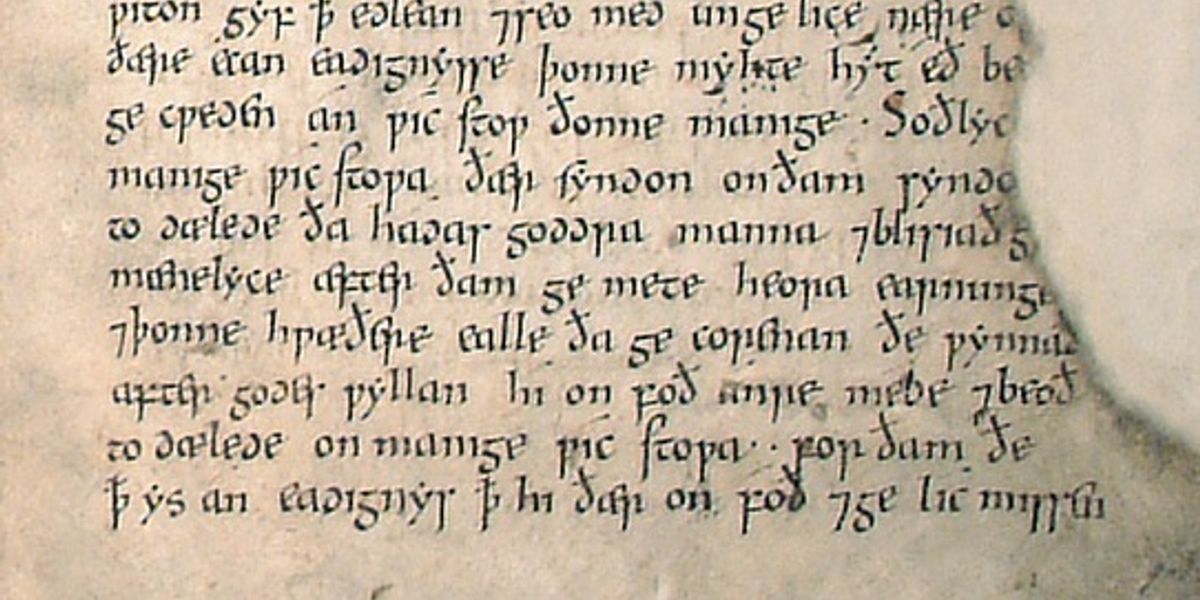 ƿiton gyf ꝥ edlean ⁊seo med ungelice nære o
ðære ecan eadignysse þonne myhte hyt eð be
ge cƿeden an ƿic stop ðonne manige · Soðlyc
manige ƿic stopa ðær syndon onðam synd
to dælede ða hadas goddra manna ⁊blissiað g
mænelyce æfter ðam ge mete heora earnunge
⁊þonne hƿæðere ealle ða ge corenan ðe ƿynna
æfter godes ƿyllan hi on foð anre mede ⁊beoð
to dælede on manige ƿic stopa · · for ðam ðe
ꝥ ys an eadignys ꝥ hi ðær on foð ⁊ge lic missen